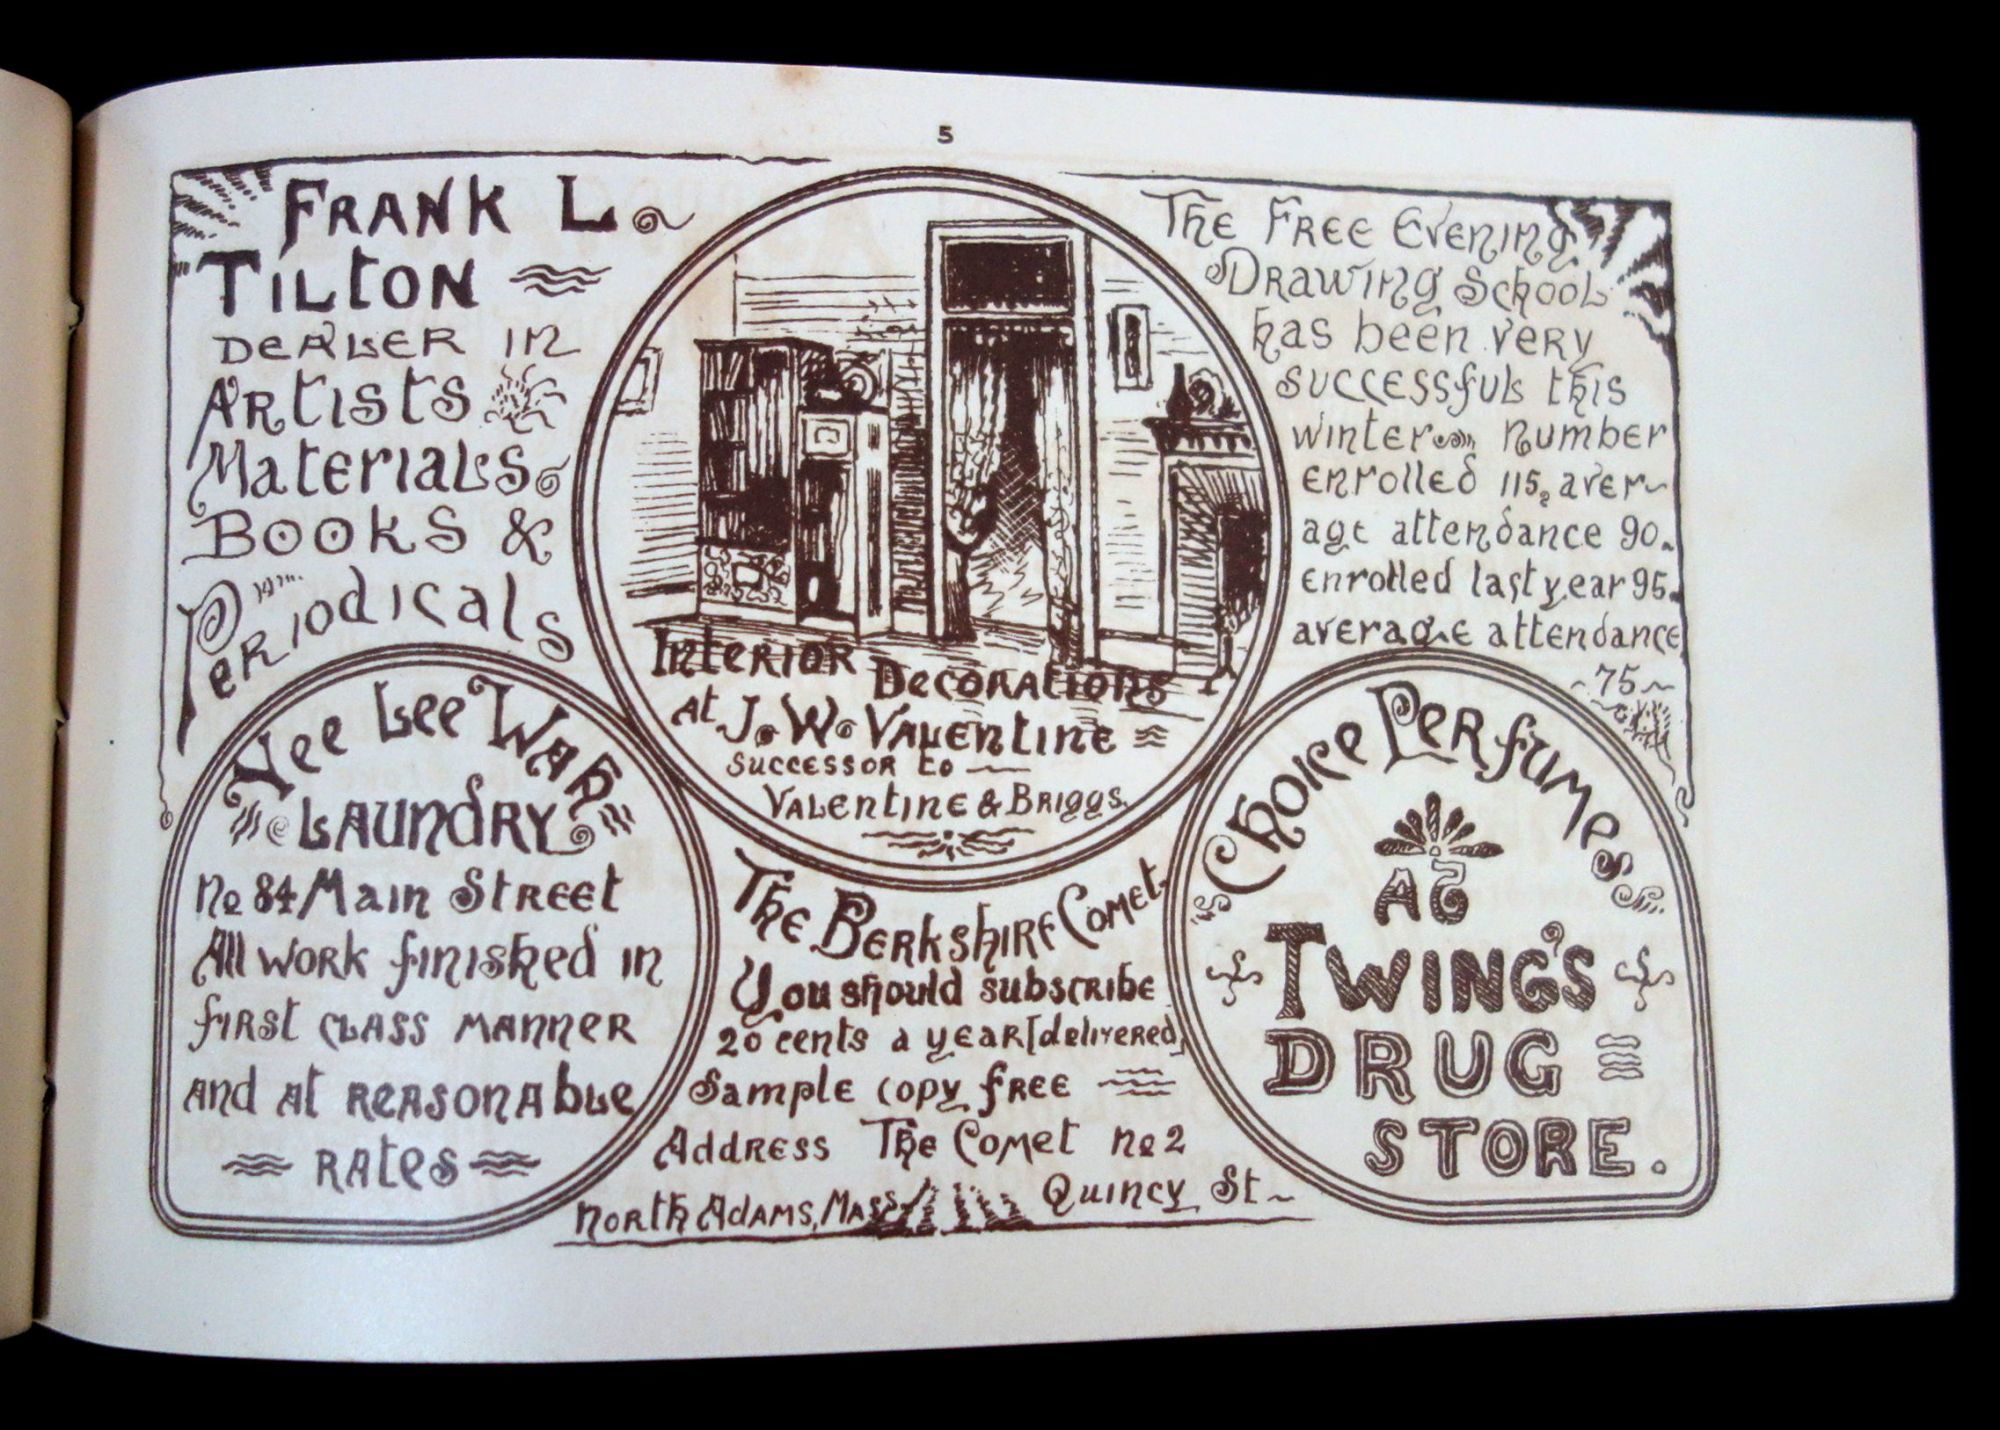 5
FRANK L.
TILTON
DEALER IN
ARTISTS
MATERIALS.
BOOKS &
PERIODICALS
INTERIOR DECORATIONS
AT J. W. VALENTINE
SUCCESSOR TO
VALENTINE & BRIGGS.
THE FREE EVENING
DRAWING SCHOOL
has been very
successful this
winter. Number
enrolled 115, aver-
age attendance 90.
enrolled last year 95.
average attendance
75
Yee Lee Wah
LAUNDRY
No 84 Main Street
All work finished in
first class manner
and at reasonable
rates
The Berkshire Comet.
You should subscribe
20 cents a year [delivered]
Sample copy free
Address The Comet No 2
North Adams, Mass. Quincy St.
Choice Perfumes
AT
TWING'S
DRUG
STORE.